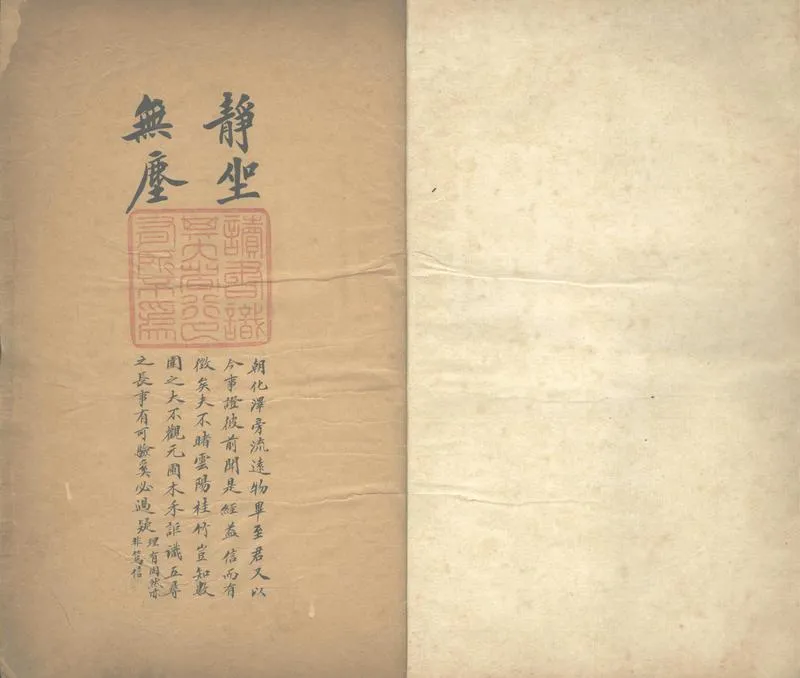 靜坐
無塵
讀書識
其大者行己
有所不為
朝化澤旁流遠物畢至君又以
今事證彼前聞是經益信而有
徵矣夫不睹雲陽桂竹豈知數
圍之大不觀元圃木禾詎識五尋
之長事有可驗奚必過疑
理有固然亦
非篤信